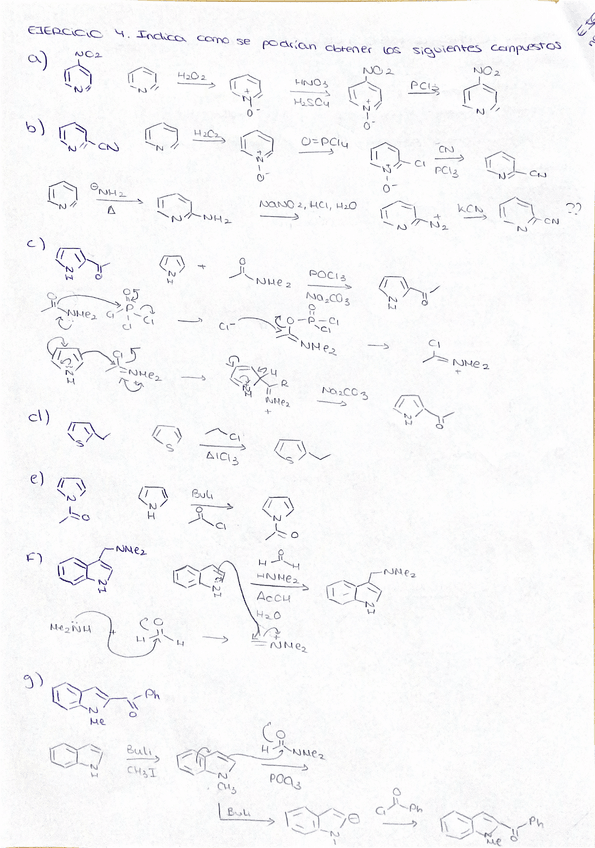 EJERCICIO 4. Indica como se podrían obtener los siguientes compuestos
a) NO2 H2O2 HNO3 H2SO4 NO2 PCl3 NO2
N N N+ O- N+ O- N
b) CN H2O2 O=PCl4 Cl -CN PCl3 CN
N N N+ O- N+ O- N
⊖NH2 Δ NH2 NaNO2, HCl, H2O N2+ KCN CN ??
N N N N
c) N H O N H + O NMe2 POCl3 Na2CO3 N H O
O NMe2 O Cl P Cl Cl → Cl- O P Cl Cl NMe2 → Cl NMe2 +
N H Cl NMe2 → N H H R NMe2 + Na2CO3 N H O
d) S S Cl AlCl3 S
e) N O N H BuLi O Cl N O
f) NMe2 N H N H O H H HNMe2 AcOH H2O NMe2 N H
Me2NH + O H H → + NMe2
g) N Me O Ph
N H BuLi CH3I N CH3 O H NMe2 POCl3
BuLi N ⊖ O Cl Ph N Me O Ph